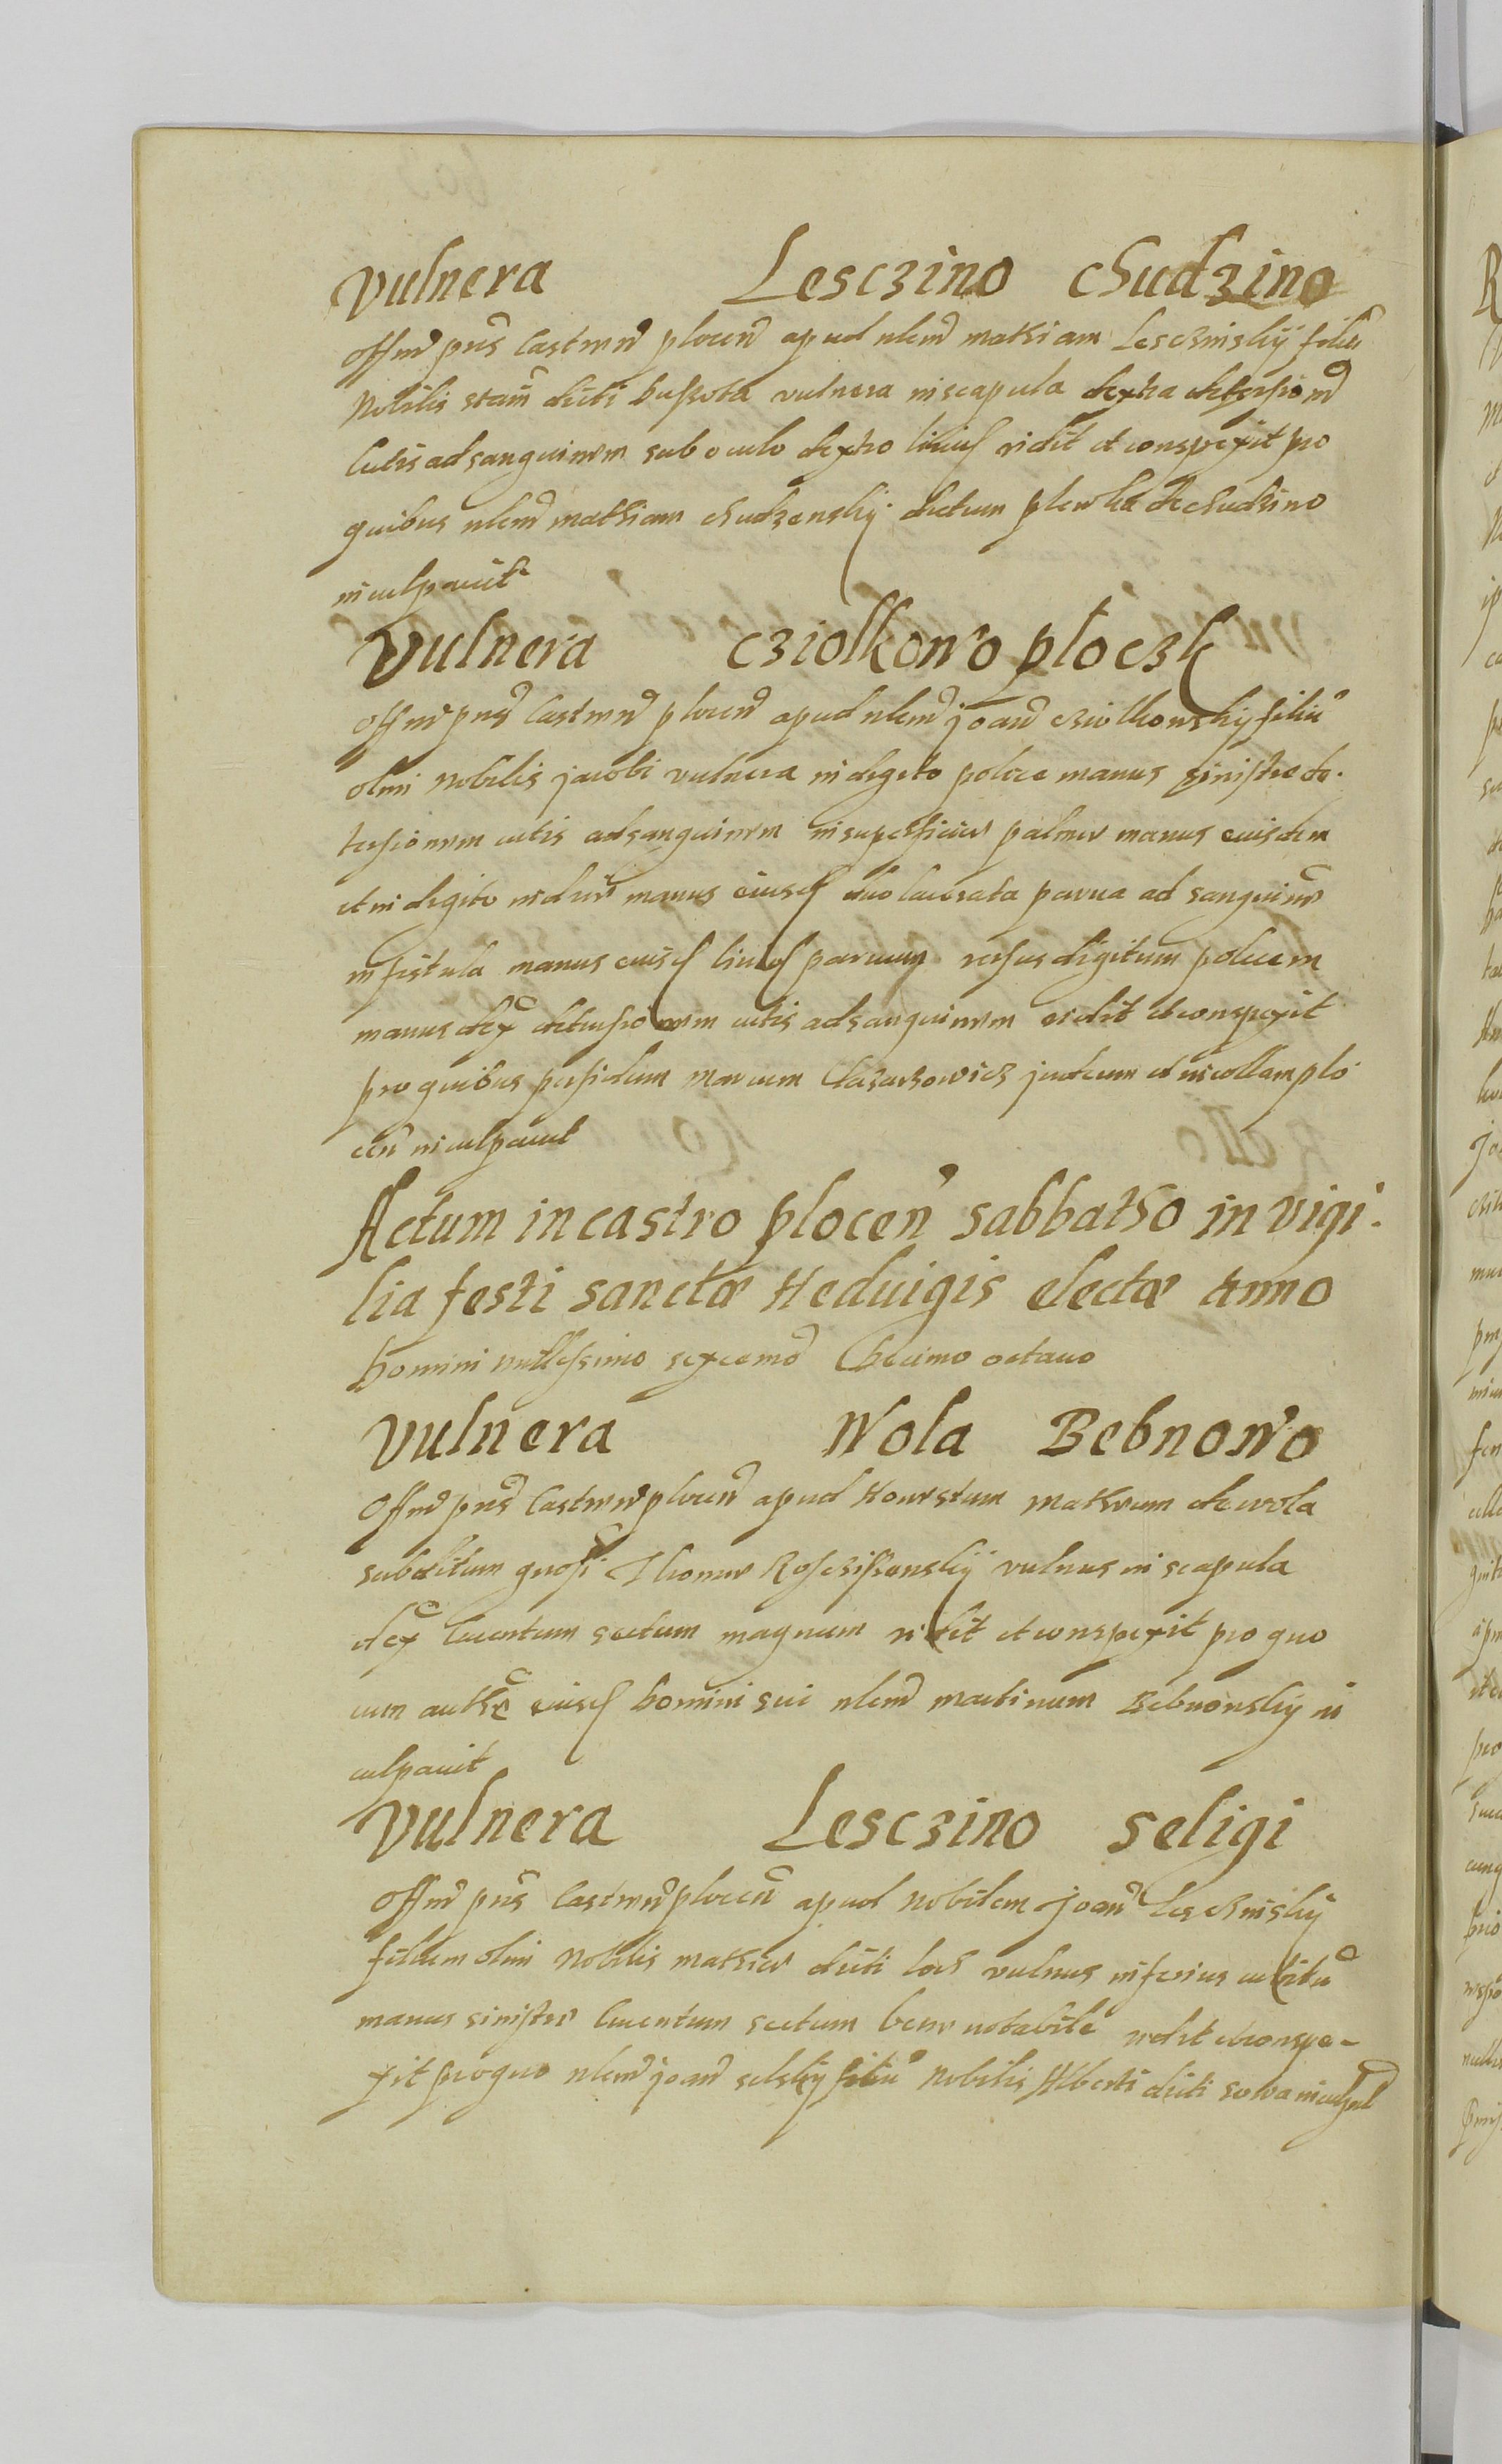 Vulnera Lesczino chudzino
Offm pns Castren plocen apud nlem mathiam Lesczinskÿ filiu
Nobilis stani dicti bussota vulnera in scapula dextra detersionem
Cutis ad sanguinem sub oculo dextro liuid vidit et conspexit pro
quibus nlem mathiam chudzenskÿ dictum plewka de chudzino
inculpauit
Vulnera cziolkowo ploczk
Offm pns Castren plocen apud nlem joan cziolkowskÿ filiu
olim nobilis jacobi vulnera in digito police manus sinistre de.
tersionem cutis ad sanguinem in superficie palmae manus eiusdem
et in digito indice manus eiusd duo lacerata parua ad sanguine
in fistula manus eiusd liuid paruum versus digitum policem
manus dex detersionem cutis ad sanguinem vidit et conspexit
pro quibus perfidum marcum Lazarowicz judeum et incollam plo
cen inculpauit
Actum in castro plocen sabbatho in vigi.
lia festi sanctæ Heduigis electæ Anno
Domini millessimo sexcento Decimo octauo
Vulnera Wola Bebnowo
Offm pns Castren plocen apud Honestum matheum de wola
subditum gnosi Thomae vulnus in scapula
dex cruentum sectum magnum vidit et conspexit pro quo
cum authe eiusd Domini sui nlem martinum Bebnowskÿ in
culpauit
Vulnera Lesczino seligi
Offm pns Castren plocen apud Nobilem joan Lesczinskÿ
filium olim Nobilis mathiae dicti vulnus inferius cubitu
manus sinistre cruentum sectum bene notabile vidit et conspe-
xit pro quo nlem joan selskÿ filiu Nobilis Alberti dicti sowa inculpat